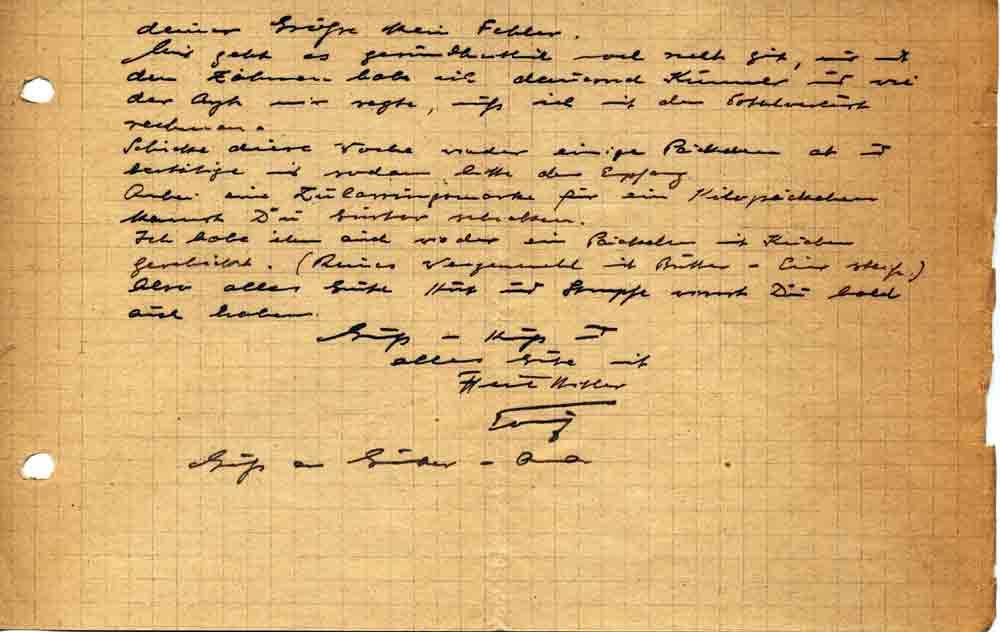 deiner Größe kein Fehler.
Mir geht es gesundheitlich recht gut, nur mit
den Zähnen habe ich dauernd Kummer und wie
der Arzt mir sagte, muß ich mit dem Totalverlust
rechnen.
Schicke diese Woche wieder einige Päckchen ab und
bestätige mir sodann bitte den Empfang
Anbei eine Zulassungsmarke für ein Kilopäckchen
kannst Du schicken.
Ich habe eben auch wieder ein Päckchen mit Kuchen
geschickt. (Reines Weizenmehl mit Butter – Eier)
Also alles Gute Hut und Strümpfe wirst Du bald
auch haben.
Gruß – Kuß und
alles Gute mit
Heil Hitler
Gruß an